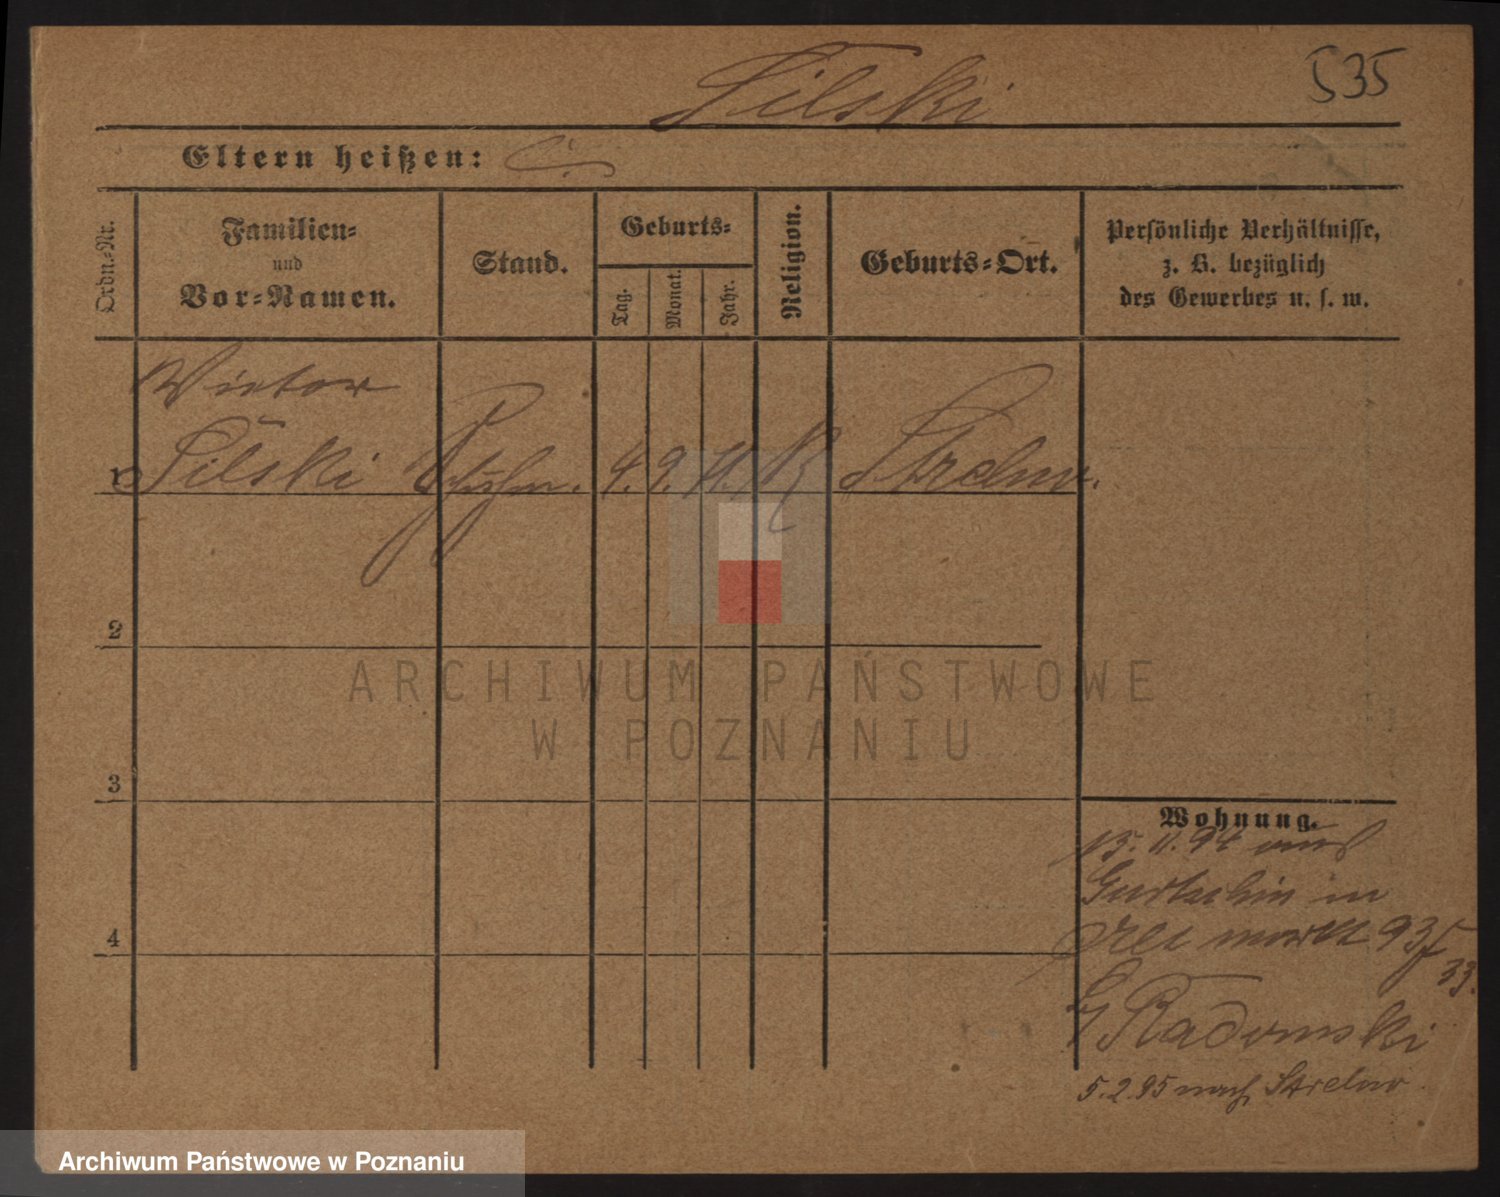 Pilski
535
Eltern heißen:
Ordn.-Nr.
Familien-
und
Vor-Namen.
Stand.
Geburts-
Tag.
Monat.
Jahr.
Religion.
Geburts-Ort.
Persönliche Verhältnisse,
z. B. bezüglich
des Gewerbes u. s. w.
Victor
1 Pilski 4. 9. K Strelno.
2
3
4
ARCHIWUM PAŃSTWOWE
W POZNANIU
Wohnung.
15. 11. 94 aus
in
93
33.
Radomski
5. 2. 95 nach Strelno.
Archiwum Państwowe w Poznaniu